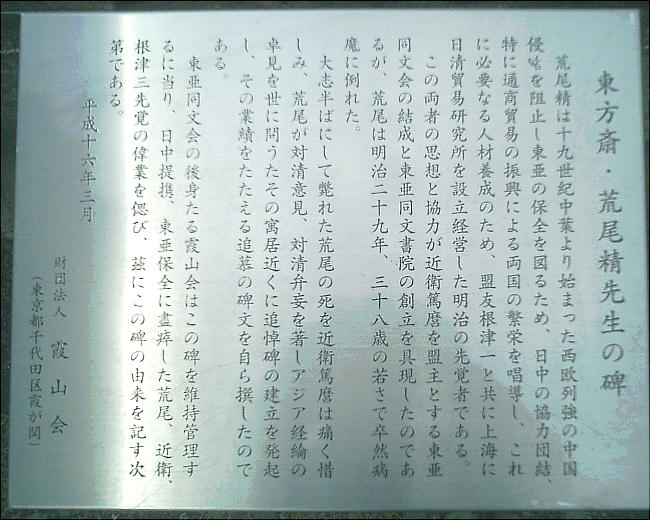 東方斎・荒尾精先生の碑
荒尾精は十九世紀中葉より始まった西欧列強の中国
侵略を阻止し東亜の保全を図るため、日中の協力団結、
特に通商貿易の振興による両国の繁栄を唱導し、これ
に必要なる人材養成のため、盟友根津一と共に上海に
日清貿易研究所を設立経営した明治の先覚者である。
この両者の思想と協力が近衛篤麿を盟主とする東亜
同文会の結成と東亜同文書院の創立を具現したのであ
るが、荒尾は明治二十九年、三十八歳の若さで卒然病
魔に倒れた。
大志半ばにして斃れた荒尾の死を近衛篤麿は痛く惜
しみ、荒尾が対清意見、対清弁妄を著しアジア経綸の
卓見を世に問うたその寓居近くに追悼碑の建立を発起
し、その業績をたたえる追慕の碑文を自ら撰したので
ある。
東亜同文会の後身たる霞山会はこの碑を維持管理す
るに当り、日中提携、東亜保全に盡瘁した荒尾、近衛、
根津三先覚の偉業を偲び、茲にこの碑の由来を記す次
第である。
平成十六年三月
財団法人 霞山会
(東京都千代田区霞が関)